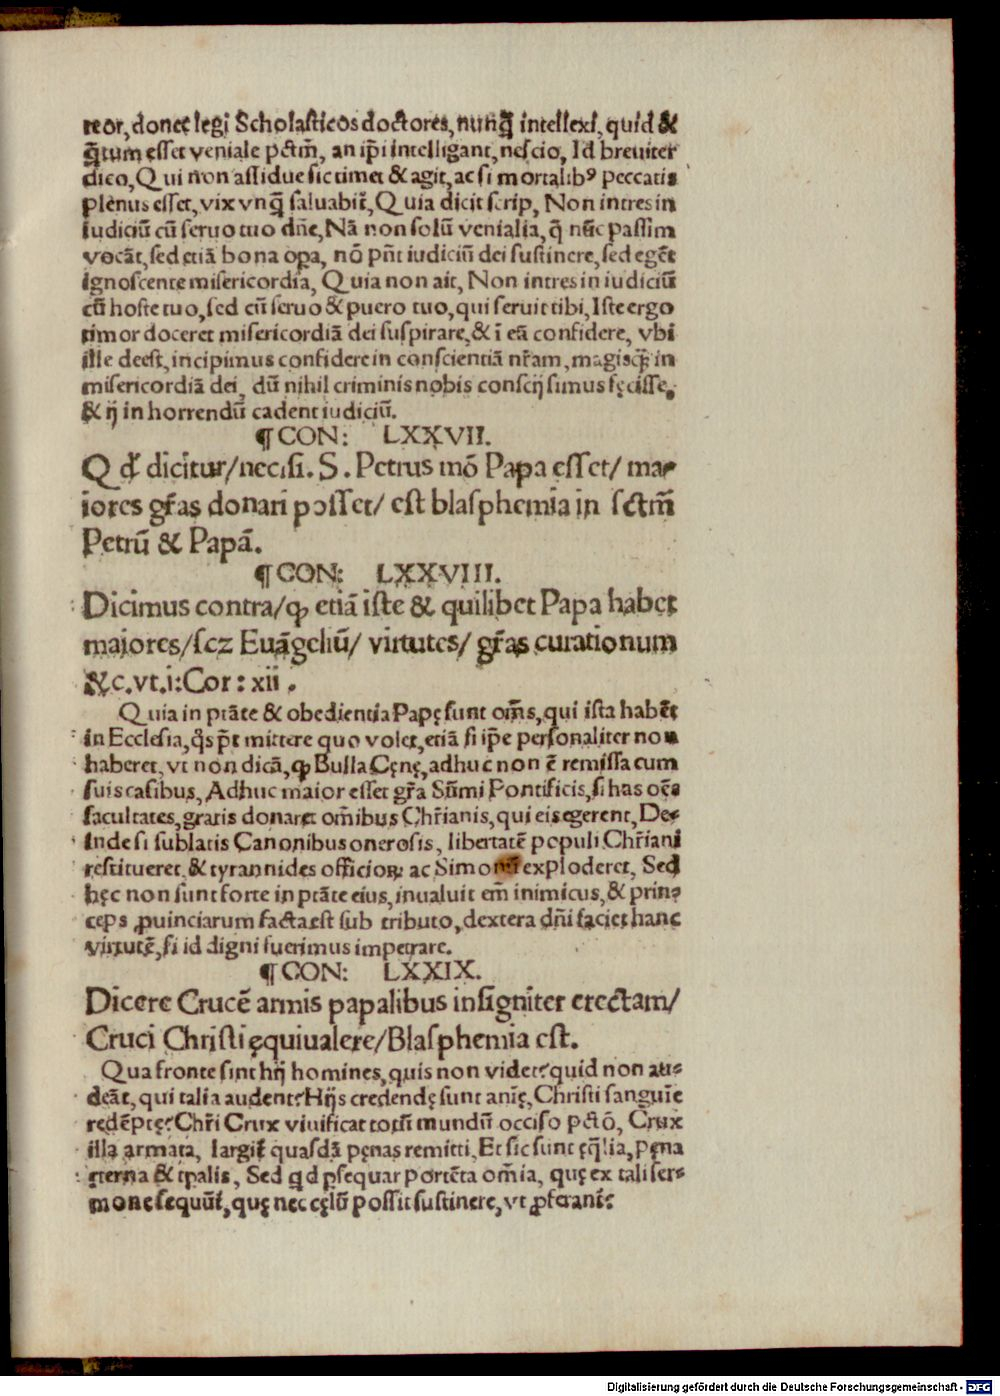 reor, donec legi Scholasticos doctores, nunq̄ intellexi, quid &
q̄tum esset veniale pctm̄, an ip̄i intelligant, nescio, Id breuiter
dico, Qui non assidue sic timet & agit, ac si mortalibꝰ peccatis
plenus esset, vix vnq̄ saluabit̄, Quia dicit scrip, Non intres in
iudiciū cū seruo tuo dn̄e, Nā non solū venialia, q̄ nūc passim
vocāt, sed etiā bona oꝑa, nō pn̄t iudiciū dei sustinere, sed egēt
ignoscente misericordia, Quia non ait, Non intres in iudiciū
cū hoste tuo, sed cū seruo & puero tuo, qui seruit tibi, Iste ergo
timor doceret misericordiā dei suspirare, & ī eā confidere, vbi
ille deest, incipimus confidere in conscientiā nr̄am, magisq̄ in
misericordiā dei, dū nihil criminis nobis conscij simus fęcisse,
& ij in horrendū cadent iudiciū.
¶CON: LXXVII.
Qd̄ dicitur/nec si. S. Petrus mō Papa esset/ ma-
iores gr̄as donari posset/ est blasphemia in sctm̄
Petrū & Papā.
¶CON: LXXVIII.
Dicimus contra/ꝙ etiā iste & quilibet Papa habet
maiores/scz Euāgeliū/ virtutes/ gr̄as curationum
&c. vt. i: Cor: xii.
Quia in ptāte & obedientia Papę sunt om̄s, qui ista habēt
in Ecclesia, q̊s pt̄ mittere quo volet, etiā si ip̄e personaliter non
haberet, vt non dicā, ꝙ Bulla Cęnę, adhuc non ē remissa cum
suis casibus, Adhuc maior esset gr̄a Sūmi Pontificis, si has oēs
facultates, gratis donaret om̄ibus Chr̄ianis, qui eis egerent, De-
inde si sublatis Canonibus onerosis, libertatē populi Chr̄iani
restitueret & tyrannides officioꝝ ac Simonū exploderet, Sed
hęc non sunt forte in ptāte eius, inualuit em̄ inimicus, & prin-
ceps ꝓuinciarum facta est sub tributo, dextera dn̄i faciet hanc
virtutē, si id digni fuerimus impetrare.
¶CON: LXXIX.
Dicere Crucē armis papalibus insigniter erectam/
Cruci Christi ęquiualere/Blasphemia est.
Qua fronte sint hij homines, quis non videt? quid non au-
deāt, qui talia audent? Hijs credendę sunt anię, Christi sanguīe
redēptę? Chr̄i Crux viuificat totū mundū occiso pctō, Crux
illa armata, largit̄ quasdā pęnas remitti, Et sic sunt ęq̄lia, pęna
ęterna & tp̄alis, Sed qd ꝑsequar portēta om̄ia, quę ex tali ser-
mone sequūt̄, quę nec cęlū possit sustinere, vt ꝓferant?
Digitalisierung gefördert durch die Deutsche Forschungsgemeinschaft - DFG